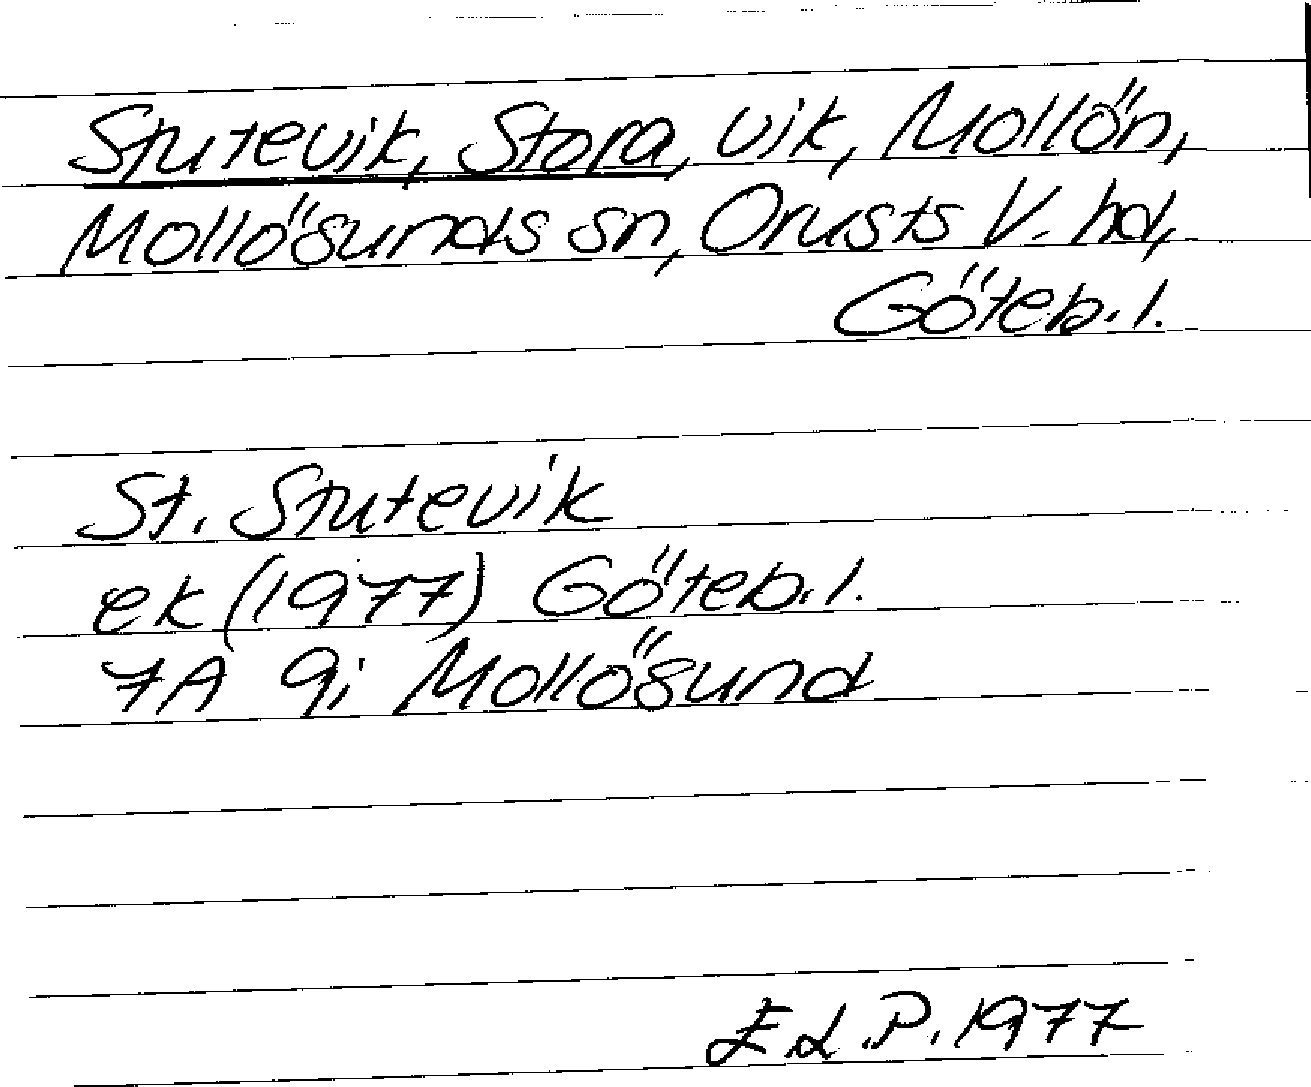 Stutevik, Stora, vik, Mollön,
Mollösunds sn, Orusts V. hd,
Göteb. l.
St. Stutevik
ek (1977) Göteb. l.
7A 9i Mollösund
E.L.P. 1977